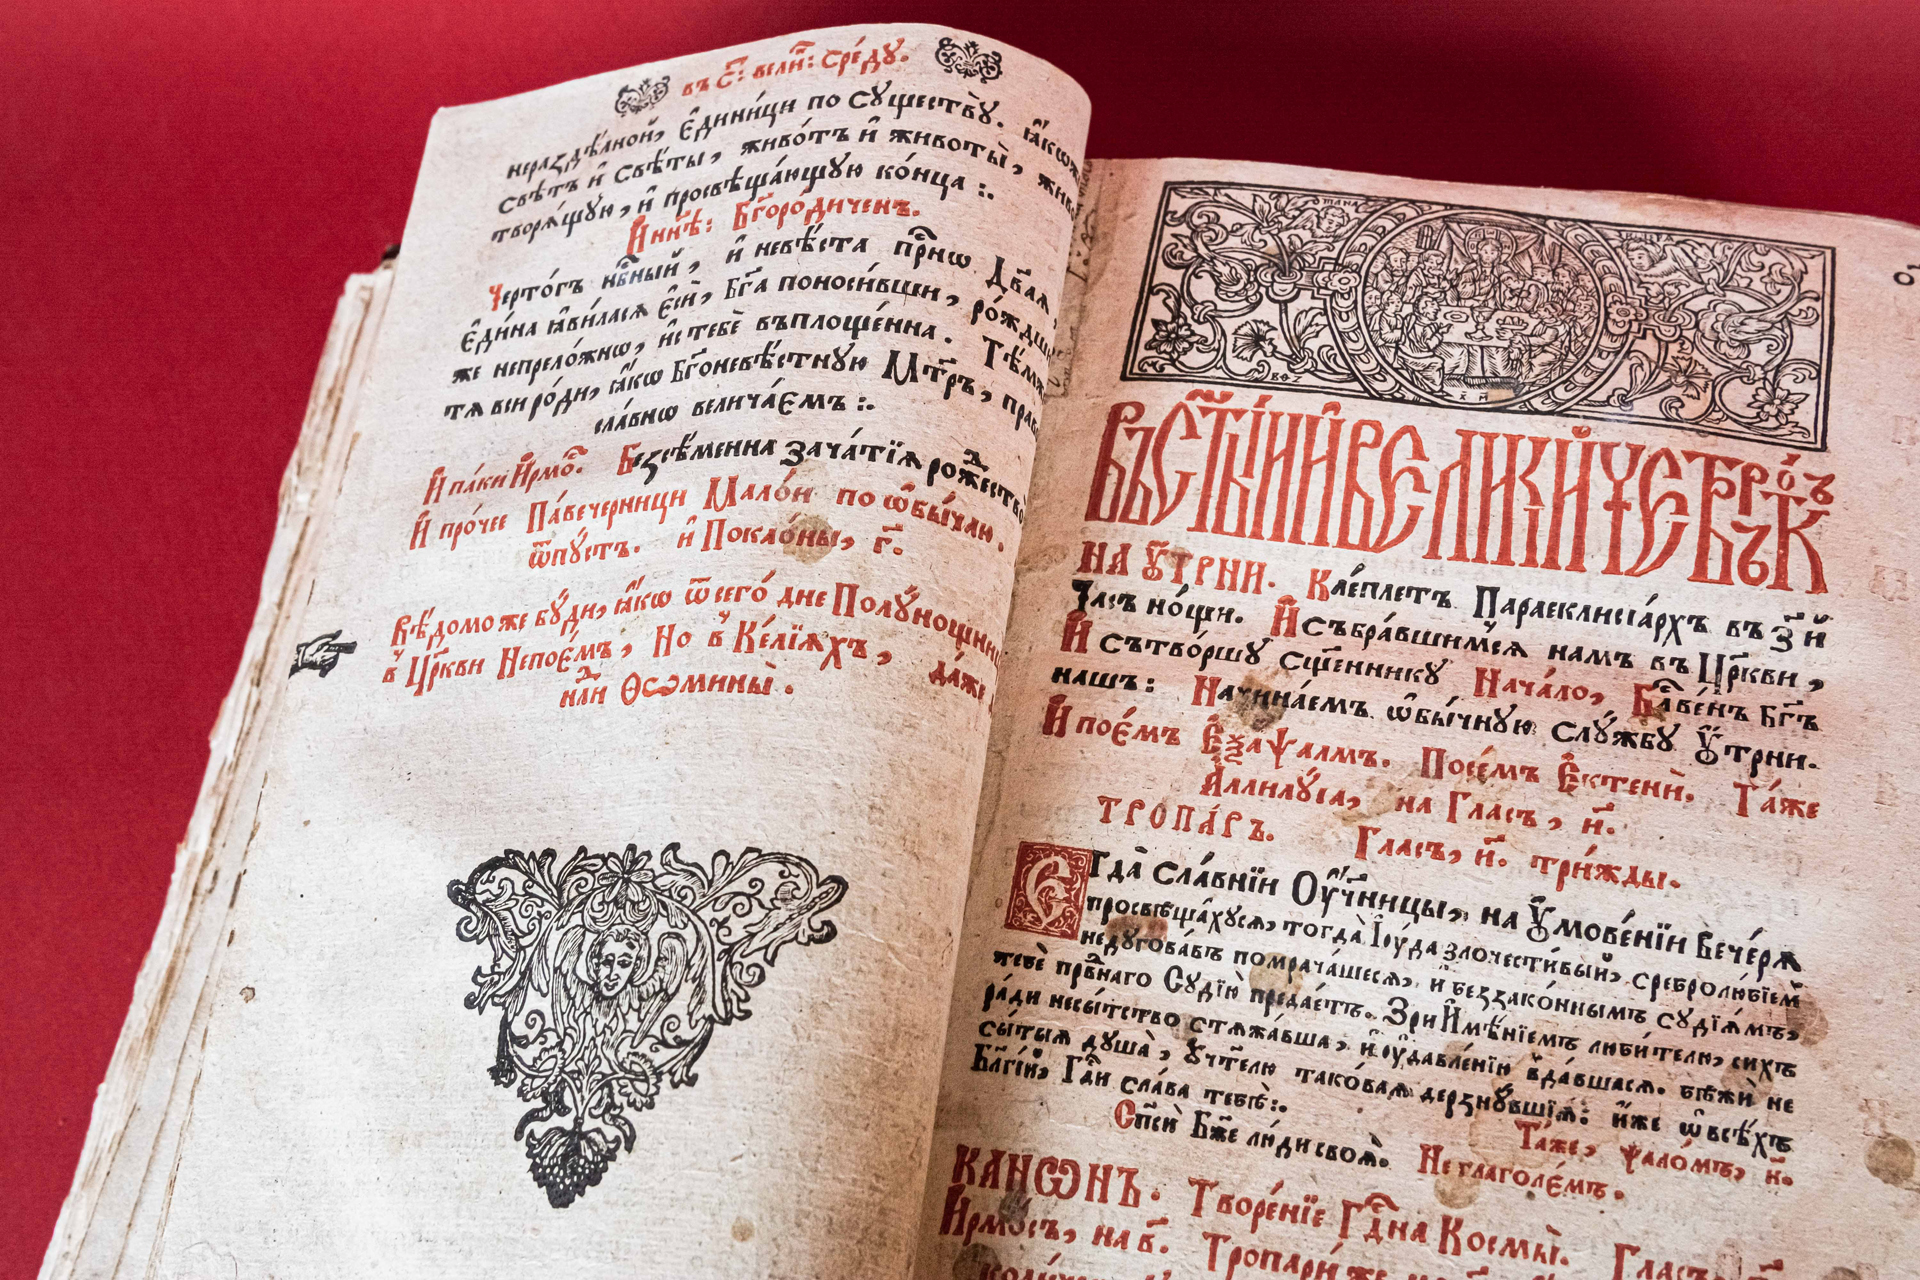 въ С҃: вели҃: Сре́дꙋ.
нераздѣ́лной, Є҆дини́ци по Сꙋществꙋ̀.
Свѣ́тъ и҆ Свѣ́ты, живо́тъ и҆ животы̀,
творѧ́щꙋю, и҆ просвѣща́ющꙋю ко́нца :.
И҆ нн҃ѣ: Бг҃оро́диченъ.
Черто́гъ нб҃ный, и҆ невѣ́ста пр҃нѡ Дв҃аѧ,
Є҆ди́на ꙗ҆ви́ласѧ Є҆сѝ, Бг҃а поноси́вши,
же непрело́жнѡ, и҆стебѐ въплоще́нна.
тѧ вси ро́ди, ꙗ҆́кѡ Бг҃оневѣ́стнꙋю Мт҃рь,
сла́внѡ велича́Ємъ :.
И҆ па́ки И҆рмо́с. Безсѣ́менна зача́тїѧ
И҆ про́чее Па́вечерници Мало́и по ѡ҆бы́чаю.
ѿпꙋ́стъ. и҆ Покло́ны, г҃.
Вѣ́домо же бꙋ́ди, ꙗ҆́кѡ ѿ сего́ дне
в Цр҃кви Непоє́мъ, Но в Ке́лїѧхъ, да́же
и҆лѝ Ѳѡмины̀.
ВЪ СТ҃Ы́Й И҆ ВЕЛИ́КИЙ ЧЕТВРО́ТЪК
НА Ꙋ҆́ТРНИ. Клеплетъ Параеклисїа́рхъ въ з҃ й
Ча́съ но́щи. И҆ събра́вшимсѧ намъ въ Цр҃кви,
И҆ сътво́ршꙋ сщ҃еннникꙋ Нача́ло, Бл҃ве́нъ Бг҃ъ
нашъ: Начина́емъ ѡ҆бы́чнꙋю слꙋ́жбꙋ Ꙋ҆́трни.
И҆ пое́мъ Є҆ѯаѱалмъ. Посе́мъ Є҆ктенѝ. Та́же
А҆ллилꙋ́їа, на Гласъ, и҃.
ТРОПА́РЬ. Гласъ, и҃. три́жды.
Єгда̀ сла́внїи Оу҆ч҃ници, на ᲂумове́нїи Вече́рѧ
просвѣща́хꙋсѧ, тогда̀ І҆ꙋ́да злочести́вый, сребролю́бїемъ
недꙋ́говавъ помрача́шесѧ, и҆ беззако́ннымъ сꙋдїѧ́мъ,
тебѐ пра́внаго Сꙋдїю̀ предае́тъ. Зри И҆мѣ́нїемъ люби́телю, сихъ
ра́ди несы́тство стѧжа́вша, и҆ оу҆давле́нїи вда́вшасѧ. бѣжѝ не
сы́тыѧ дꙋша̀, оу҆чт҃елю тако́ваѧ дерзнꙋ́вшїѧ: и҆́же ѡ҆ всѣ́хъ
Бл҃гі́й, Гд҃и сла́ва тебѣ̀:. Та́же, ѱало́мъ, н҃.
Сп҃сѝ Бж҃е лю́ди своѧ̀. Не глаголе́мъ.
КАНѠ́НЪ. Творе́нїе Гд҃на Космы̀. Гласъ
И҆рмо́съ, на в҃. Тропари́ же